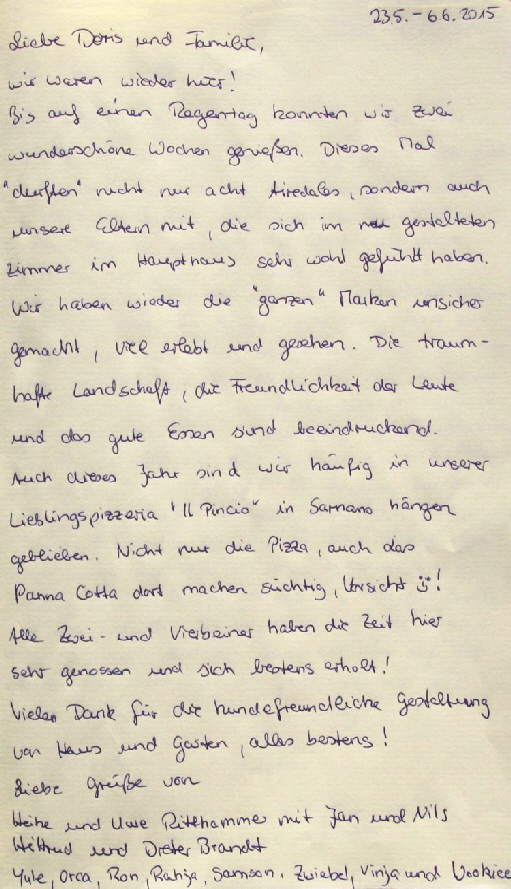 23.5. - 6.6.2015
Liebe Doris und Familie,
wir waren wieder hier!
Bis auf einen Regentag konnten wir zwei
wunderschöne Wochen genießen. Dieses Mal
"durften" nicht nur acht Airedales, sondern auch
unsere Eltern mit, die sich im neu gestalteten
Zimmer im Haupthaus sehr wohl gefühlt haben.
Wir haben wieder die "ganzen" Marken unsicher
gemacht, viel erlebt und gesehen. Die traum-
hafte Landschaft, die Freundlichkeit der Leute
und das gute Essen sind beeindruckend.
Auch dieses Jahr sind wir häufig in unserer
Lieblingspizzeria "Il Pincio" in Sarnano hängen
geblieben. Nicht nur die Pizza, auch das
Panna Cotta dort machen süchtig, Vorsicht !
Alle Zwei- und Vierbeiner haben die Zeit hier
sehr genossen und sich bestens erholt!
Vielen Dank für die hundefreundliche Gestaltung
von Haus und Garten, alles bestens!
Liebe Grüße von
Heike und Uwe mit Jan und Nils
und Dieter Brandt
Yule, Orca, Ron, Samson, Zwiebel, Vinja und